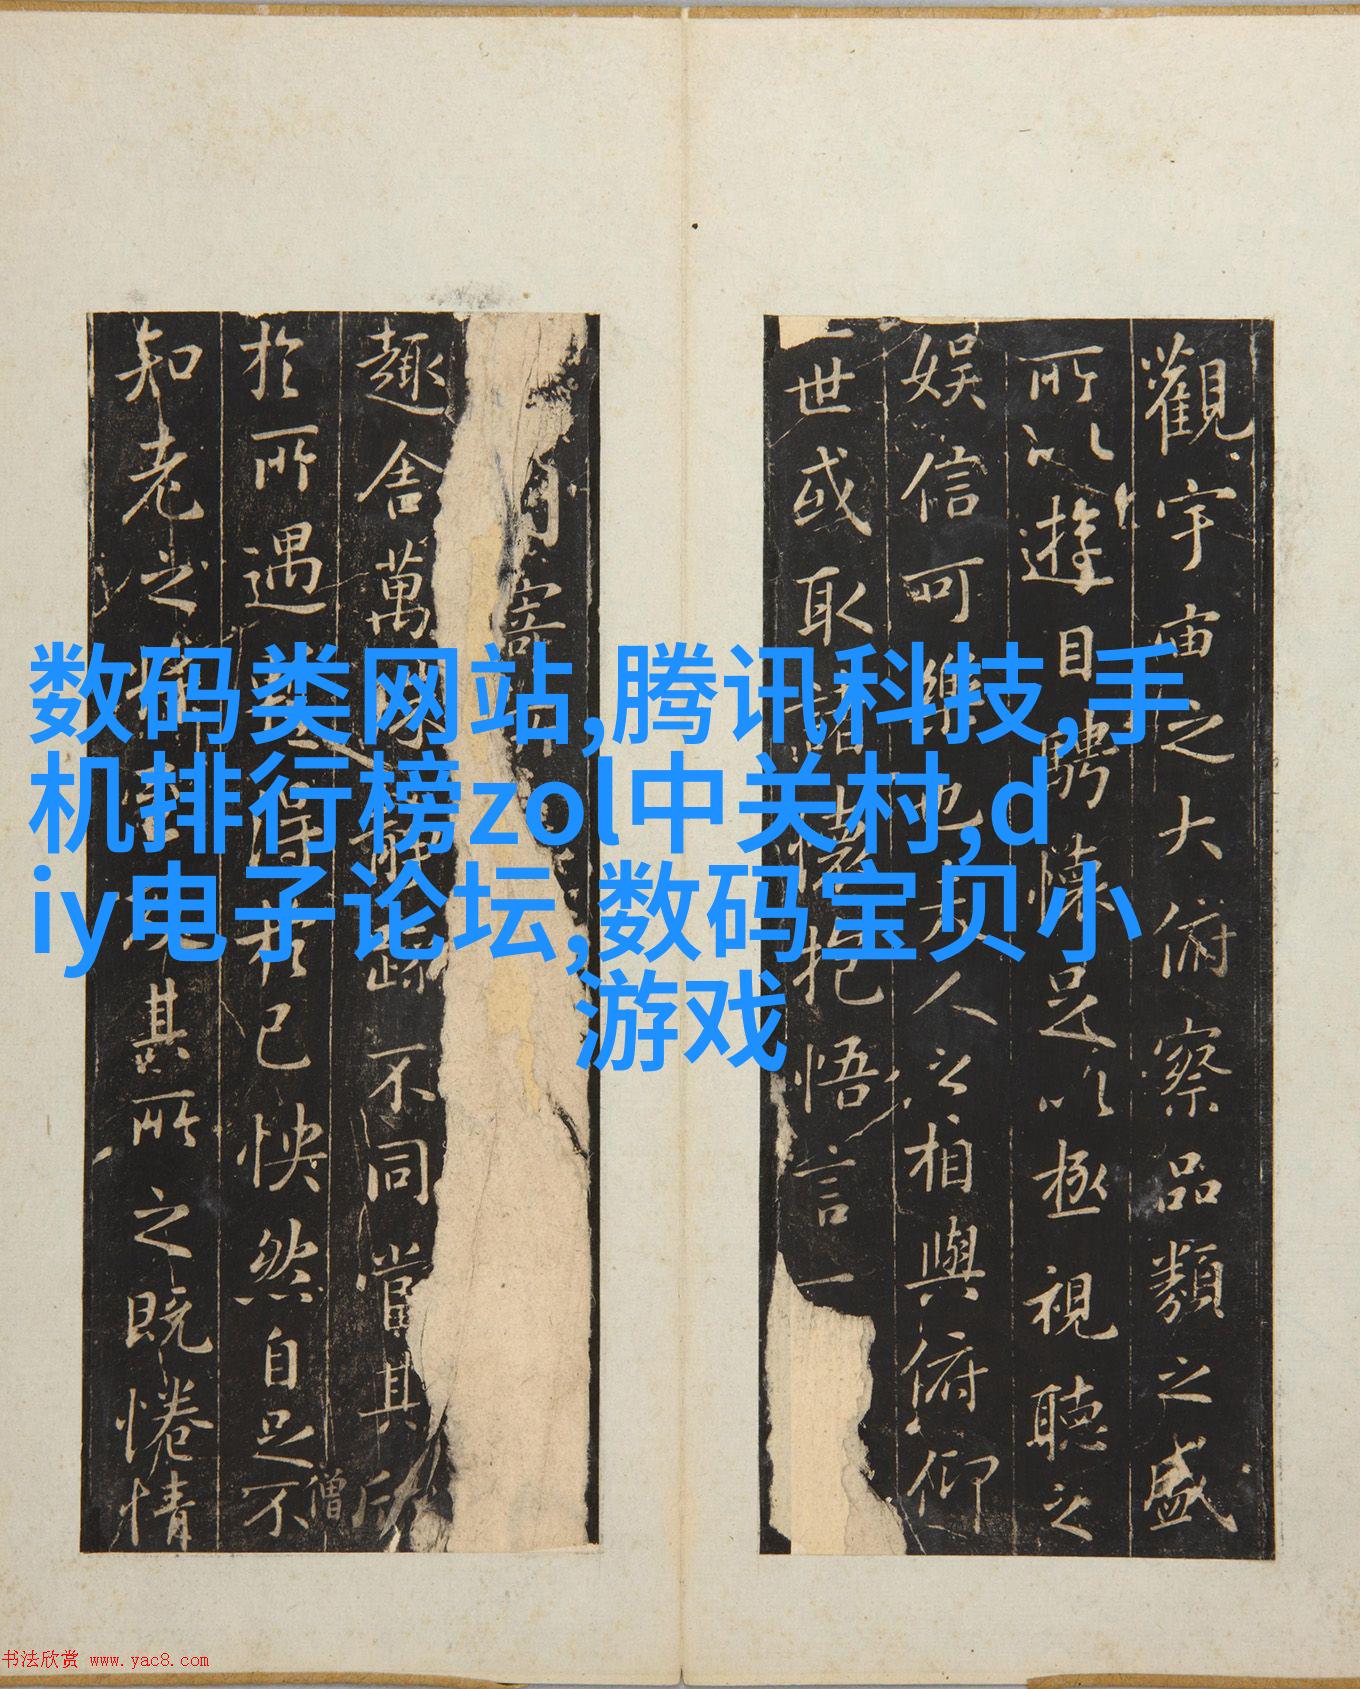 数码类网站,腾讯科技,手
机排行榜zol中关村,d
iy电子论坛,数码宝贝小
游戏
觀宇宙之大俯察品類之盛
所以遊目騁懷足以極視聽之
娛信可樂也夫人之相與俯仰
世或取諸懷抱悟言一
寄
趣舍萬殊靜躁不同當其欣
僧
於所遇暫得於己怏然自足不
知老之將至及其所之既惓情
书法欣赏 www.yac8.com